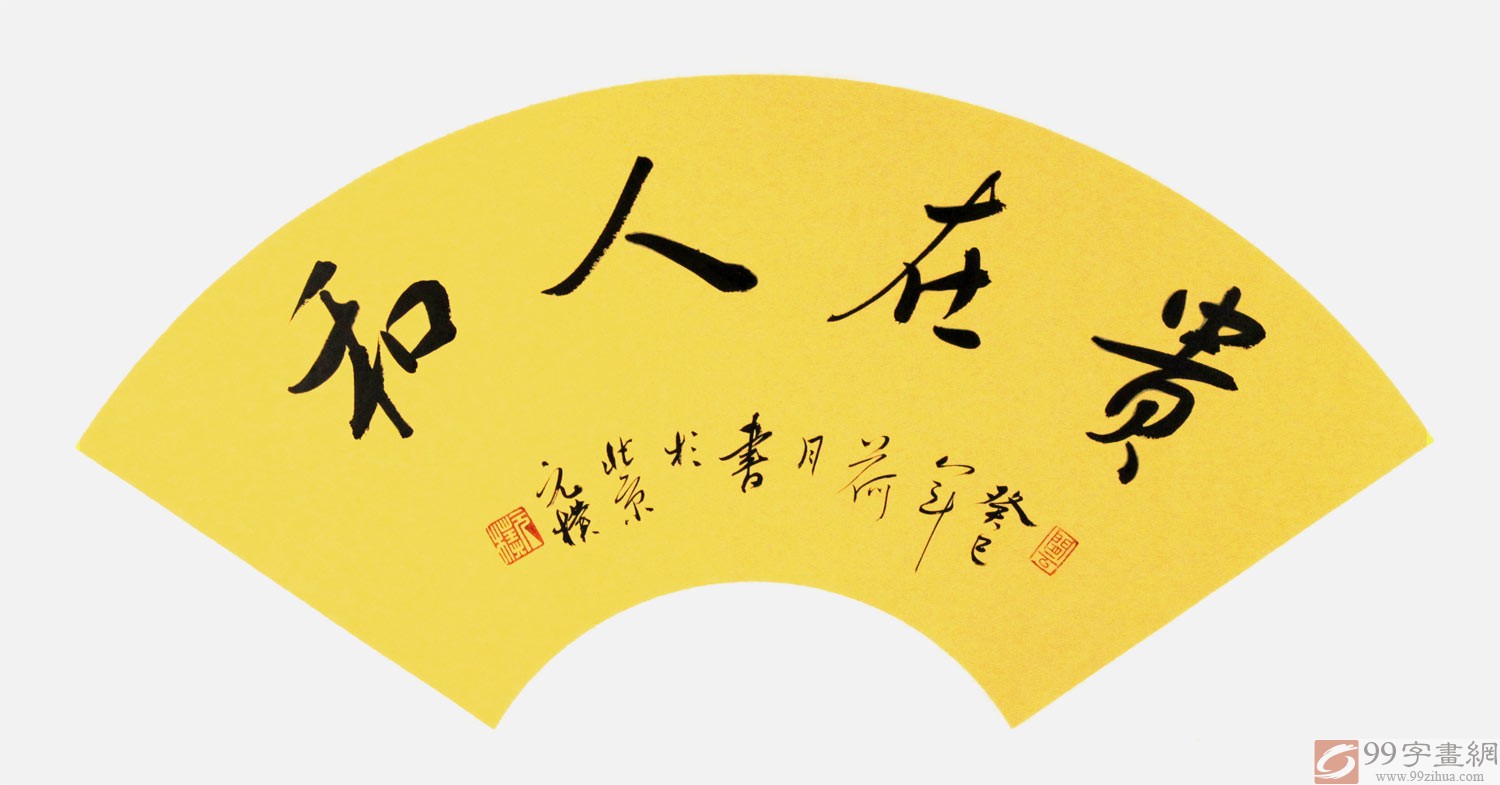 貴在人和
癸巳年荷月書於北京元樸
99字畫網
www.99zihua.com